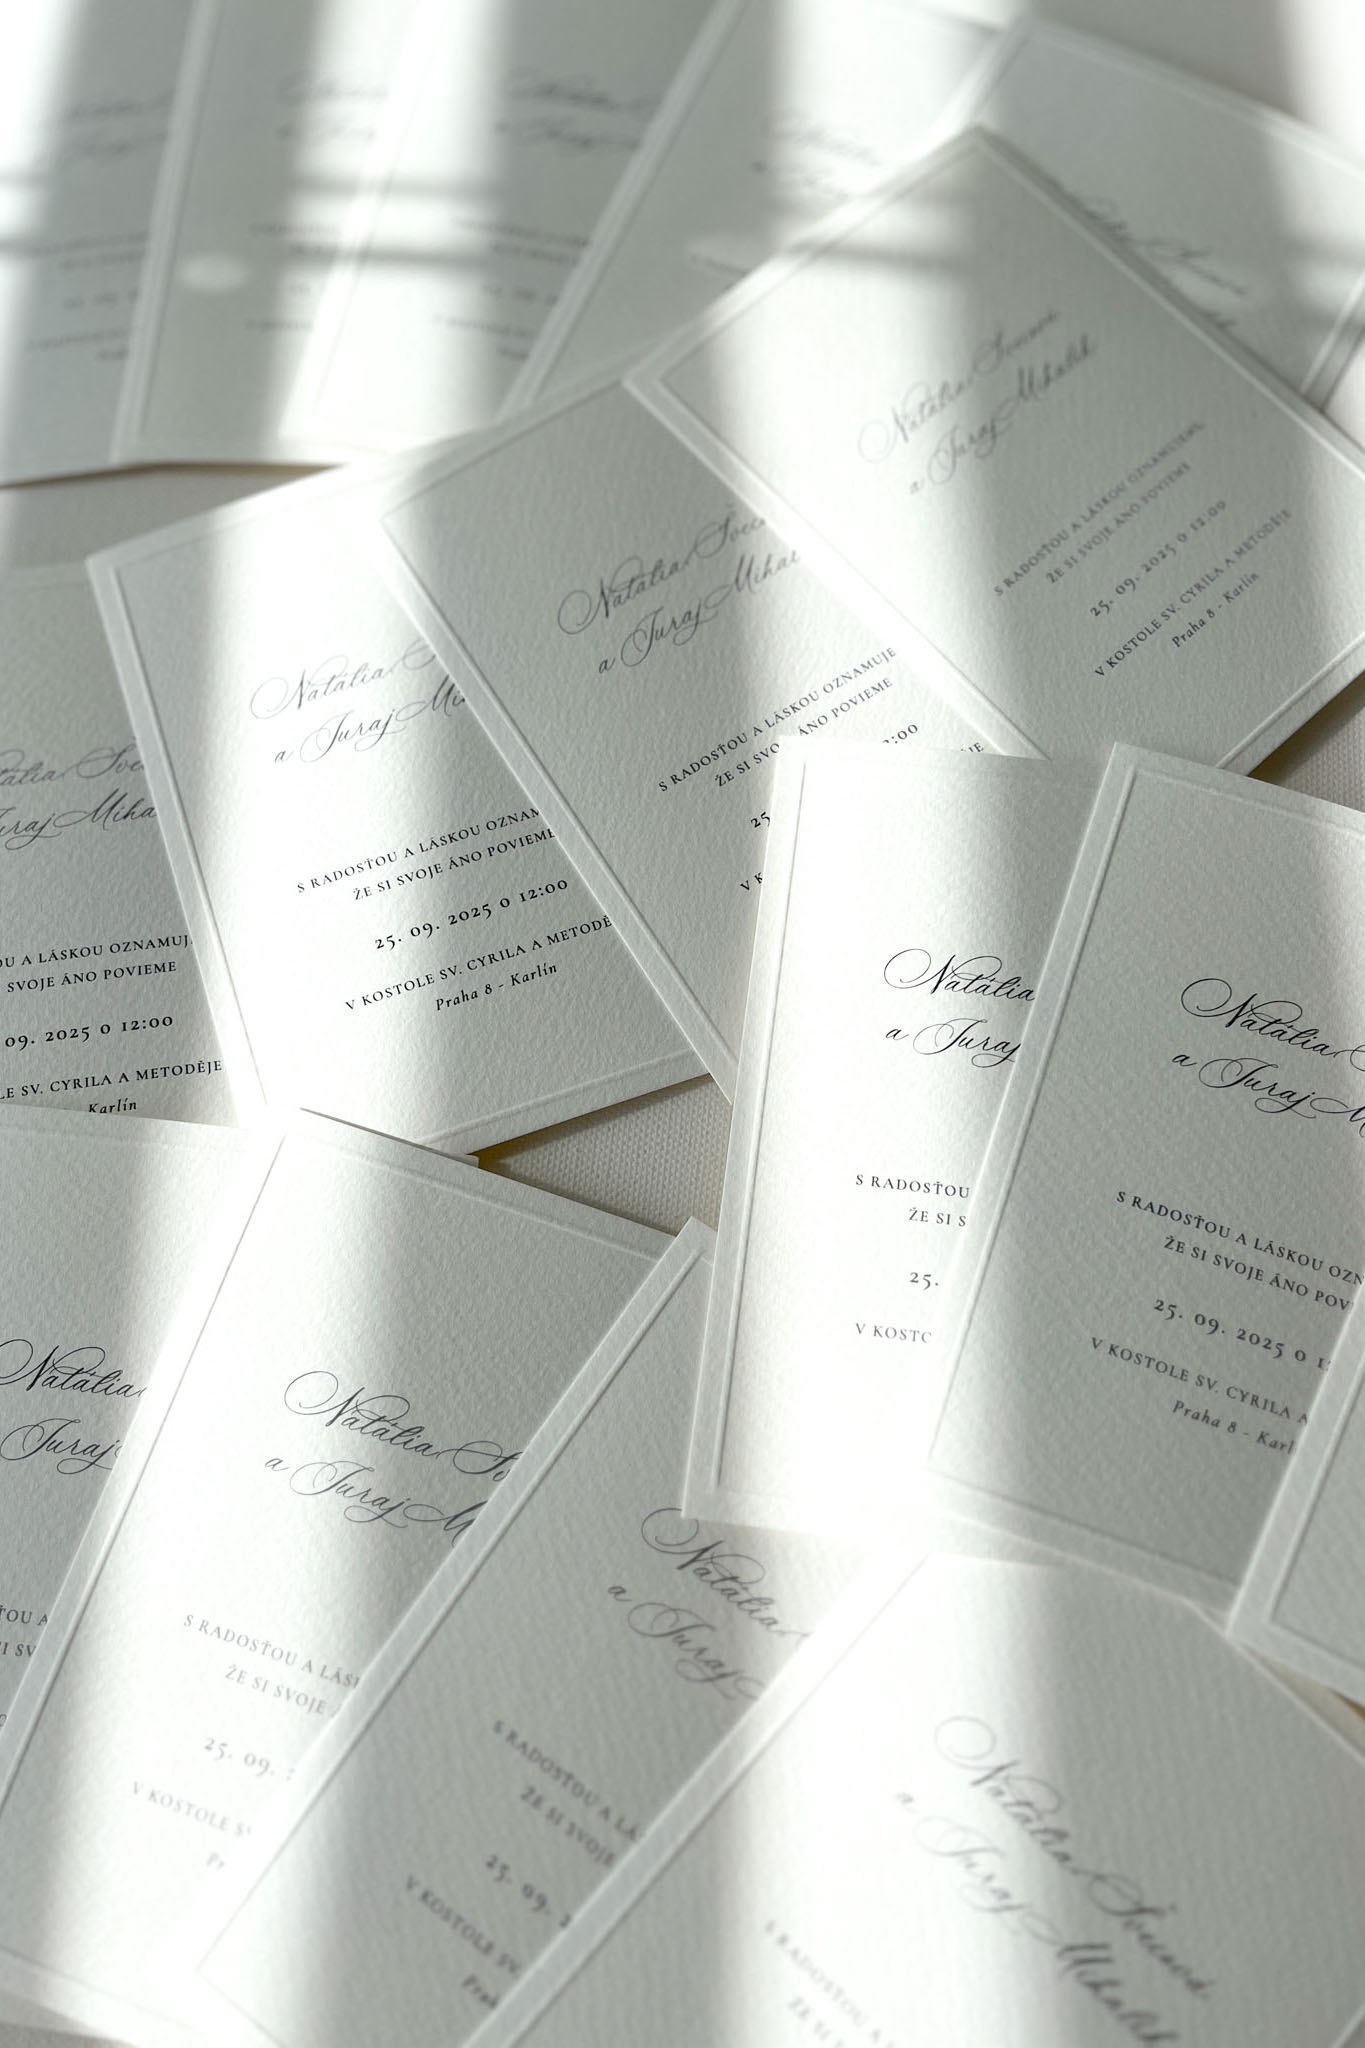 Natália Švecová
a Juraj Mihalik
S RADOSŤOU A LÁSKOU OZNAMUJEME,
ŽE SI SVOJE ÁNO POVIEME
25. 09. 2025 o 12:00
V KOSTOLE SV. CYRILA A METODĚJE
Praha 8 - Karlín
Natália
a Juraj
S RADOSŤOU A LÁSKOU OZNAMUJE
ŽE SI SVO ÁNO POVIEME
25
:00
V K
Natália
a Juraj
S RADOSŤOU A LÁSKOU OZNAM
ŽE SI SVOJE ÁNO POVIEME
25. 09. 2025 o 12:00
V KOSTOLE SV. CYRILA A METODĚ
Praha 8 - Karlín
OU A LÁSKOU OZNAMUJ
SVOJE ÁNO POVIEME
09. 2025 o 12:00
LE SV. CYRILA A METODĚJE
Karlín
Natália
a Juraj
S RADOSŤOU
ŽE SI S
25.
V KOSTO
Natália
a Juraj M
S RADOSŤOU A LÁSKOU OZN
ŽE SI SVOJE ÁNO POV
25. 09. 2025 o 1
V KOSTOLE SV. CYRILA A
Praha 8 - Karl
Natália
Juraj
Natália
a Juraj M
S RADOSŤOU A LÁS
ŽE SI SVOJE
25. 09.
V KOSTOLE S
Pr
Natália
a Juraj
S RADOSŤOU A LÁ
ŽE SI SVOJE
25. 09. 2
V KOSTOLE SV.
Pra
Natália Švecová
a Juraj Mihalik
S RADOSŤOU A
ŽE SI